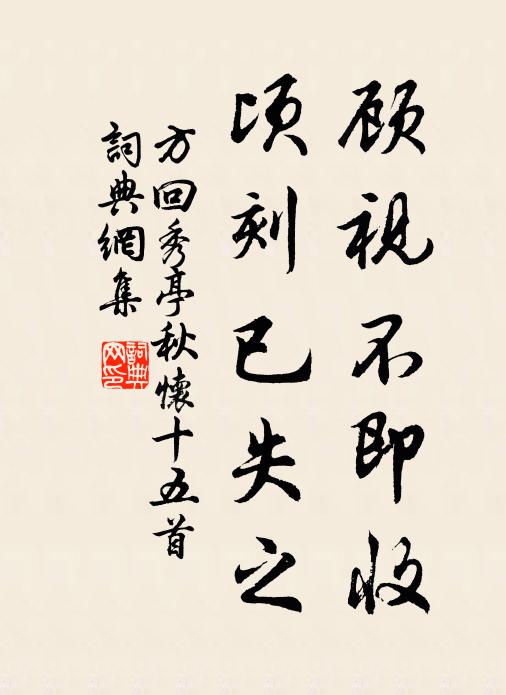 顾视不即收
顷刻已失之
方回秀亭秋懷十五首
詞典網集
詞典网印